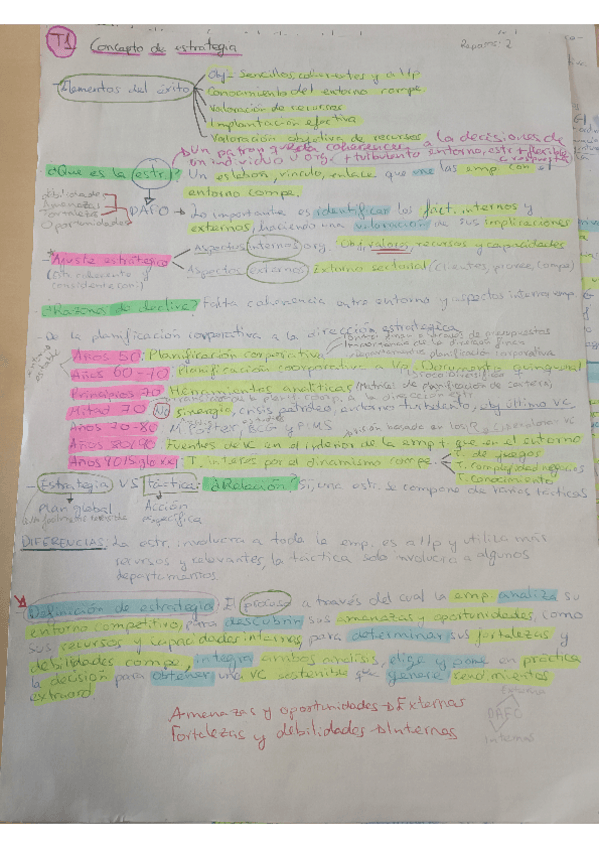 T1 Concepto de estrategia
Repasos: 2
Elementos del éxito
Obj- Sencillos, coherentes y a l/p
Conocimiento del entorno compe.
Valoración de recursos
Implantación efectiva
Valoración objetiva de recursos
Un patrón que da coherencia a la decisiones de
un individuo u org. (+ turbulento entorno, estr + flexible
¿Que es la estr? Un eslabón, vínculo, enlace que une las emp. con el
entorno compe.
Debilidades
Amenazas
Fortalezas
Oportunidades
DAFO → Lo importante es identificar los fact. internos y
externos, haciendo una valoración de sus implicaciones
Ajuste estratégico
Aspectos internos org. Obj, valores, recursos y capacidades
Aspectos externos: Entorno sectorial (Clientes, provee, compe)
¿Razones de declive? Falta coherencia entre entorno y aspectos internos emp.
- De la planificación corporativa a la dirección estratégica
Años 50: Planificación corporativa
departamento planificación corporativa
Años 60-70 Planificación corporativa a l/p. Documento quinquenal
Principios 70 Herramientas analíticas (Matrices de planificación de cartera)
Mitad 70 No sinergia, crisis petróleo, entorno turbulento, obj último VC
Años 70-80 M. Porter, BCG y PIMS
Años 80/90 Fuentes de VC en el interior de la emp + que en el entorno
Años 90/Siglo XXI: T. interés por el dinamismo compe.
T. de juegos
T. complejidad negocios
T. conocimiento
- Estrategia VS táctica: ¿Relación? Sí, una estr. se compone de varias tácticas
Plan global
Acción específica
DIFERENCIAS: La estr. involucra a toda la emp. es a l/p y utiliza más
recursos y relevantes, la táctica solo involucra a algunos
departamentos.
Definición de estrategia: El proceso a través del cual la emp. analiza su
entorno competitivo, para descubrir sus amenazas y oportunidades, como
sus recursos y capacidades internas, para determinar sus fortalezas y
debilidades compe, integra ambos análisis, elige y pone en práctica
la decisión para obtener una VC sostenible que genere rendimientos
extraord.
Externas
DAFO
Internas
Amenazas y oportunidades → Externas
Fortalezas y debilidades → Internas